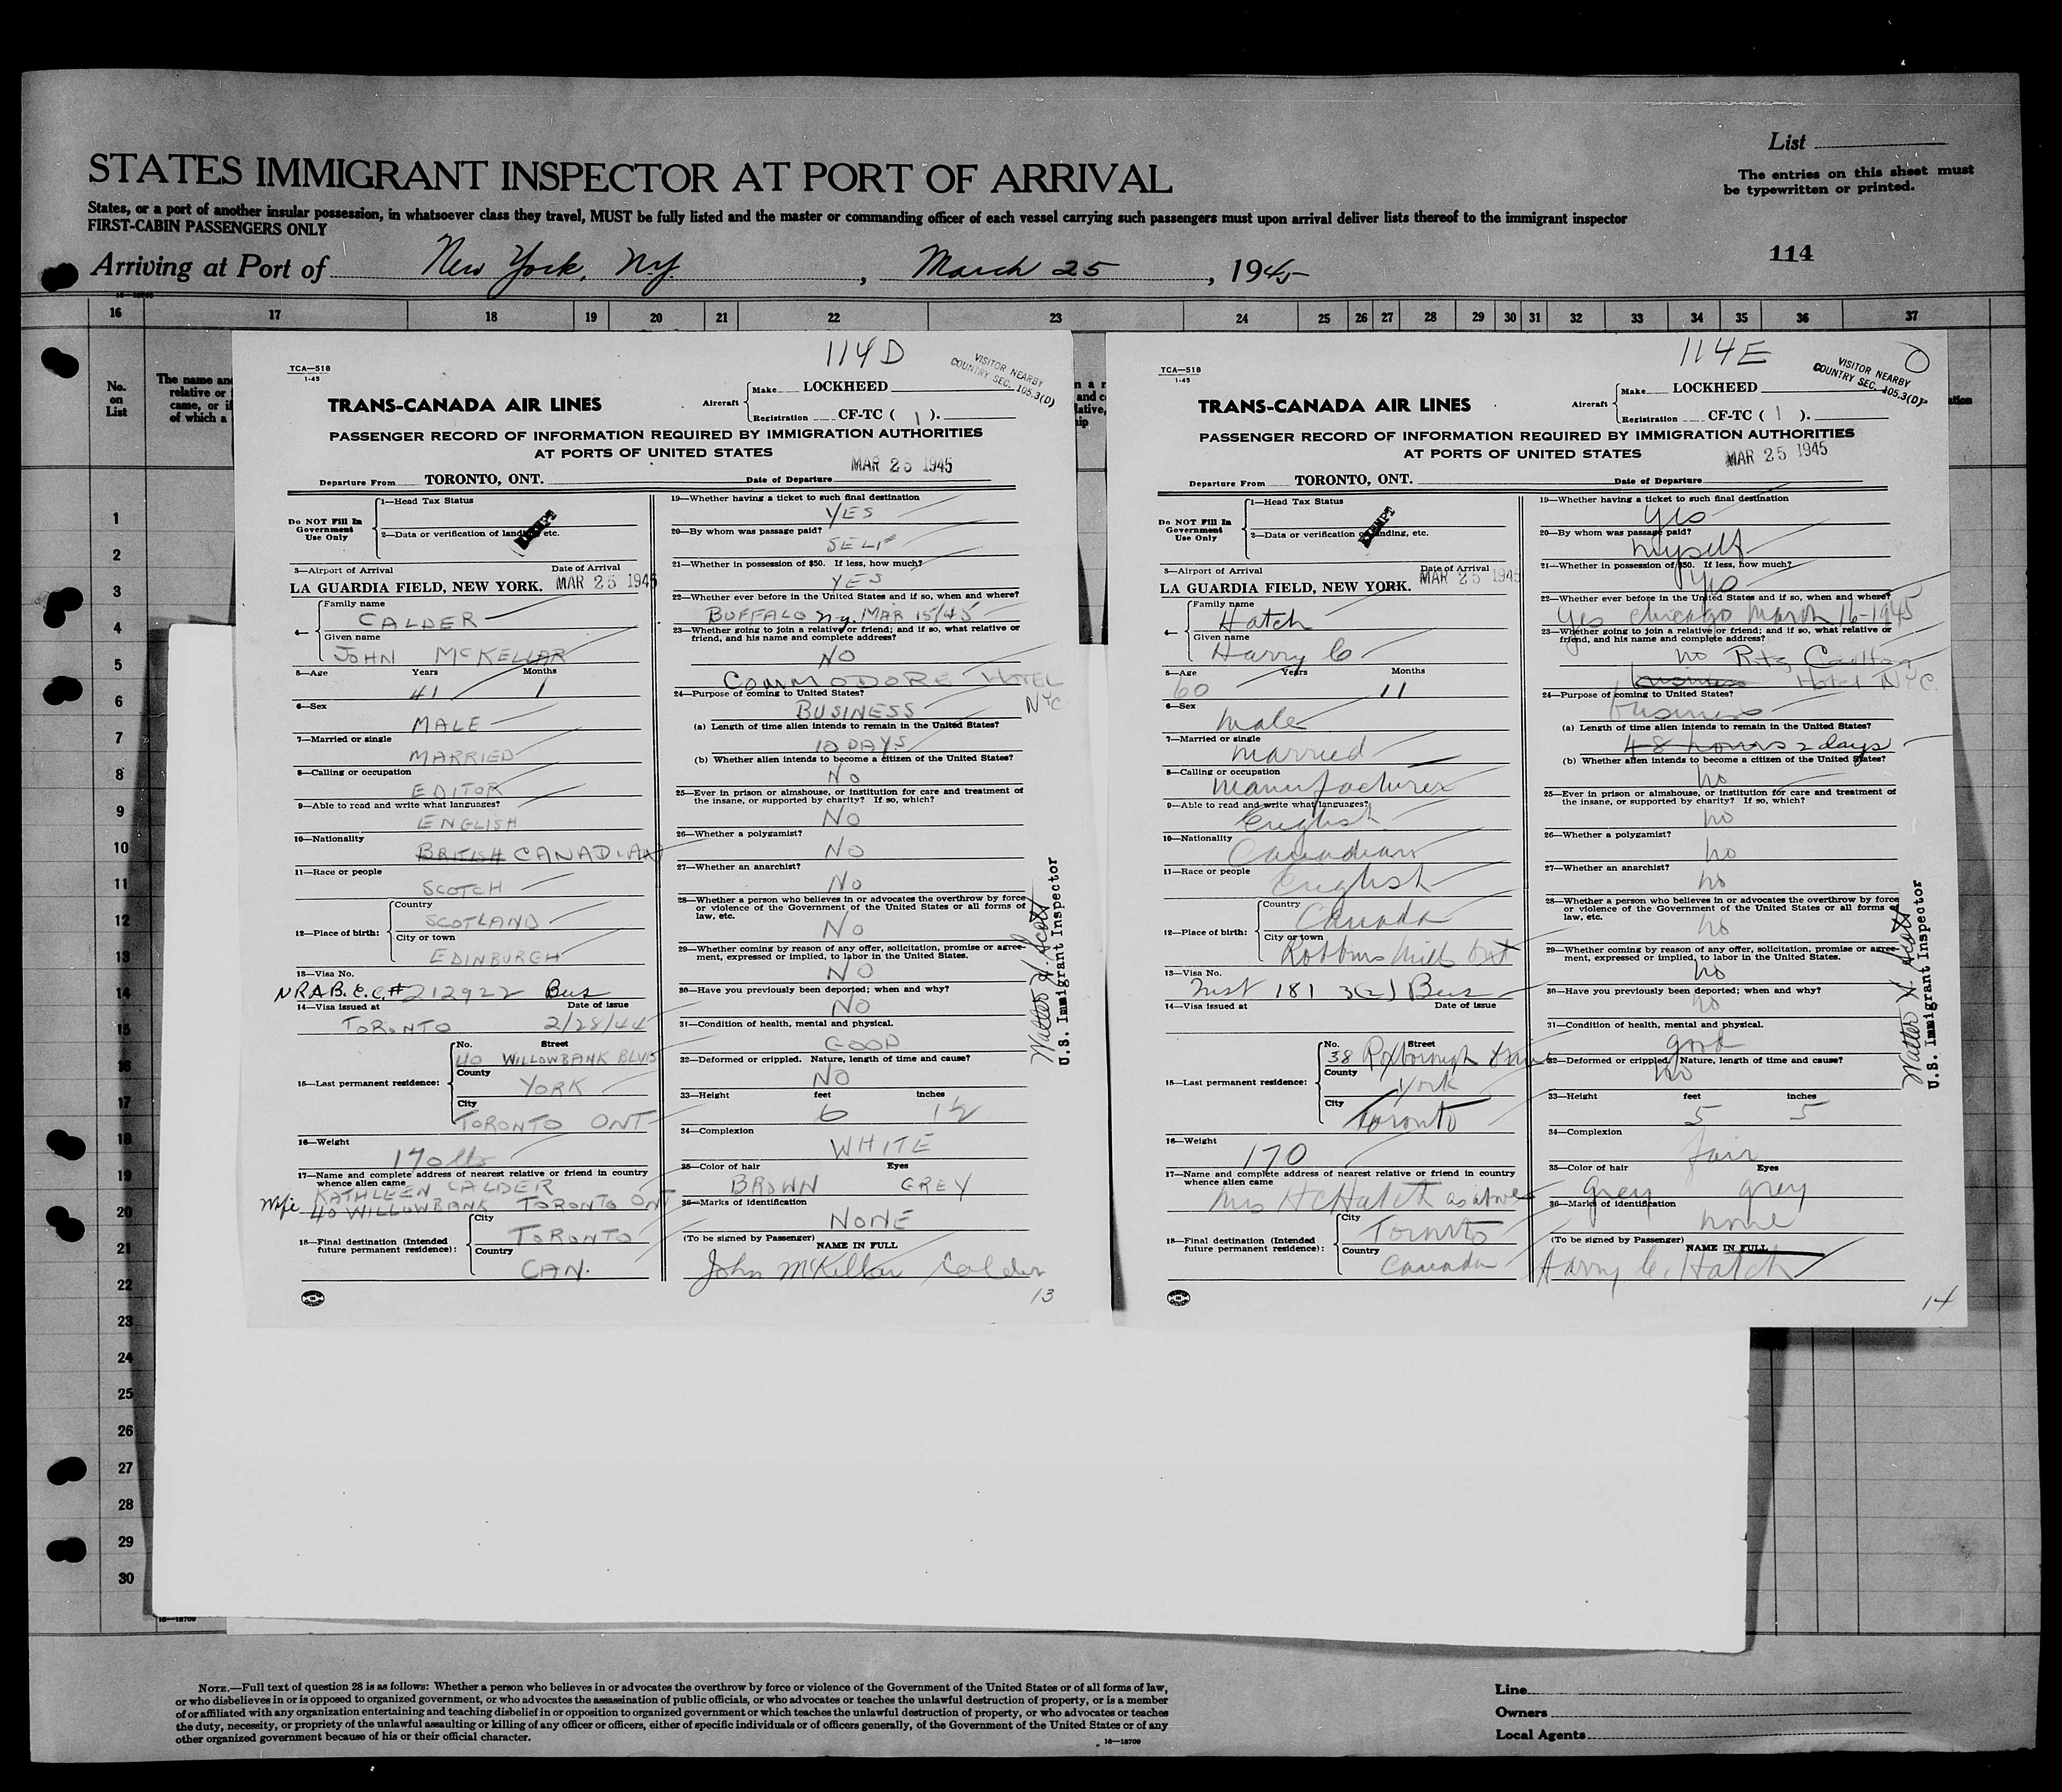 List
STATES IMMIGRANT INSPECTOR AT PORT OF ARRIVAL
The entries on this sheet must
be typewritten or printed.
States, or a port of another insular possession, in whatsoever class they travel, MUST be fully listed and the master or commanding officer of each vessel carrying such passengers must upon arrival deliver lists thereof to the immigrant inspector
FIRST-CABIN PASSENGERS ONLY
Arriving at Port of New York, NY. , March 25 , 1945
114
16 17 18 19 20 21 22 23 24 25 26 27 28 29 30 31 32 33 34 35 36 37
No.
on
List
The name and
relative or
came, or if
of which a
1
2
3
4
5
6
7
8
9
10
11
12
13
14
15
16
17
18
19
20
21
22
23
24
25
26
27
28
29
30
114D
VISITOR NEARBY
COUNTRY SEC. 105.3(D)
TCA—518
1-45
TRANS-CANADA AIR LINES
Aircraft
Make LOCKHEED
Registration CF-TC ( 1 ).
PASSENGER RECORD OF INFORMATION REQUIRED BY IMMIGRATION AUTHORITIES
AT PORTS OF UNITED STATES
MAR 25 1945
Departure From TORONTO, ONT. Date of Departure
Do NOT Fill In
Government
Use Only
1—Head Tax Status
2—Data or verification of landing, etc.
EXEMPT
3—Airport of Arrival Date of Arrival
LA GUARDIA FIELD, NEW YORK. MAR 25 1945
4—
Family name
CALDER
Given name
JOHN McKELLAR
5—Age Years Months
41 1
6—Sex
MALE
7—Married or single
MARRIED
8—Calling or occupation
EDITOR
9—Able to read and write what languages?
ENGLISH
10—Nationality
BRITISH CANADIAN
11—Race or people
SCOTCH
12—Place of birth:
Country
SCOTLAND
City or town
EDINBURGH
13—Visa No.
NRAB.C.C.# 212922 Bus
14—Visa issued at Date of issue
TORONTO 2/28/44
15—Last permanent residence:
No. Street
40 WILLOWBANK BLVD
County
YORK
City
TORONTO ONT
16—Weight
170 lbs
17—Name and complete address of nearest relative or friend in country
whence alien came
KATHLEEN CALDER
Wife 40 WILLOWBANK TORONTO ONT
18—Final destination (Intended
future permanent residence):
City
TORONTO
Country
CAN.
19—Whether having a ticket to such final destination
YES
20—By whom was passage paid?
SELF
21—Whether in possession of $50. If less, how much?
YES
22—Whether ever before in the United States and if so, when and where?
BUFFALO N.Y. MAR 15/45
23—Whether going to join a relative or friend; and if so, what relative or
friend, and his name and complete address?
NO
COMMODORE HOTEL
NYC
24—Purpose of coming to United States?
BUSINESS
(a) Length of time alien intends to remain in the United States?
10 DAYS
(b) Whether alien intends to become a citizen of the United States?
NO
25—Ever in prison or almshouse, or institution for care and treatment of
the insane, or supported by charity? If so, which?
NO
26—Whether a polygamist?
NO
27—Whether an anarchist?
NO
28—Whether a person who believes in or advocates the overthrow by force
or violence of the Government of the United States or all forms of
law, etc.
NO
29—Whether coming by reason of any offer, solicitation, promise or agree-
ment, expressed or implied, to labor in the United States.
NO
30—Have you previously been deported; when and why?
NO
31—Condition of health, mental and physical.
GOOD
32—Deformed or crippled. Nature, length of time and cause?
NO
33—Height feet inches
6 1½
34—Complexion
WHITE
35—Color of hair Eyes
BROWN GREY
36—Marks of identification
NONE
(To be signed by Passenger)
NAME IN FULL
John McKellar Calder
13
Walter H. Scott
U.S. Immigrant Inspector
114E
VISITOR NEARBY
COUNTRY SEC. 105.3(D)
TCA—518
1-45
TRANS-CANADA AIR LINES
Aircraft
Make LOCKHEED
Registration CF-TC ( 1 ).
PASSENGER RECORD OF INFORMATION REQUIRED BY IMMIGRATION AUTHORITIES
AT PORTS OF UNITED STATES
MAR 25 1945
Departure From TORONTO, ONT. Date of Departure
Do NOT Fill In
Government
Use Only
1—Head Tax Status
2—Data or verification of landing, etc.
EXEMPT
3—Airport of Arrival Date of Arrival
LA GUARDIA FIELD, NEW YORK. MAR 25 1945
4—
Family name
Hatch
Given name
Harry C
5—Age Years Months
60 11
6—Sex
male
7—Married or single
married
8—Calling or occupation
manufacturer
9—Able to read and write what languages?
English
10—Nationality
Canadian
11—Race or people
English
12—Place of birth:
Country
Canada
City or town
Robbins Mills Ont
13—Visa No.
Inst 181 3(2) Bus
14—Visa issued at Date of issue
15—Last permanent residence:
No. Street
38 Roxborough Drive
County
York
City
Toronto
16—Weight
170
17—Name and complete address of nearest relative or friend in country
whence alien came
Mrs H C Hatch as above
18—Final destination (Intended
future permanent residence):
City
Toronto
Country
Canada
19—Whether having a ticket to such final destination
yes
20—By whom was passage paid?
myself
21—Whether in possession of $50. If less, how much?
yes
22—Whether ever before in the United States and if so, when and where?
yes Chicago March 16-1945
23—Whether going to join a relative or friend; and if so, what relative or
friend, and his name and complete address?
no Ritz Carlton
business Hotel NYC.
24—Purpose of coming to United States?
business
(a) Length of time alien intends to remain in the United States?
48 hours 2 days
(b) Whether alien intends to become a citizen of the United States?
no
25—Ever in prison or almshouse, or institution for care and treatment of
the insane, or supported by charity? If so, which?
no
26—Whether a polygamist?
no
27—Whether an anarchist?
no
28—Whether a person who believes in or advocates the overthrow by force
or violence of the Government of the United States or all forms of
law, etc.
no
29—Whether coming by reason of any offer, solicitation, promise or agree-
ment, expressed or implied, to labor in the United States.
no
30—Have you previously been deported; when and why?
no
31—Condition of health, mental and physical.
good
32—Deformed or crippled. Nature, length of time and cause?
no
33—Height feet inches
5 5
34—Complexion
fair
35—Color of hair Eyes
grey grey
36—Marks of identification
none
(To be signed by Passenger)
NAME IN FULL
Harry C. Hatch
14
Walter H. Scott
U.S. Immigrant Inspector
16—18709
NOTE.—Full text of question 28 is as follows: Whether a person who believes in or advocates the overthrow by force or violence of the Government of the United States or of all forms of law,
or who disbelieves in or is opposed to organized government, or who advocates the assassination of public officials, or who advocates or teaches the unlawful destruction of property, or is a member
of or affiliated with any organization entertaining and teaching disbelief in or opposition to organized government or which teaches the unlawful destruction of property, or who advocates or teaches
the duty, necessity, or propriety of the unlawful assaulting or killing of any officer or officers, either of specific individuals or of officers generally, of the Government of the United States or of any
other organized government because of his or their official character.
16—18709
Line
Owners
Local Agents